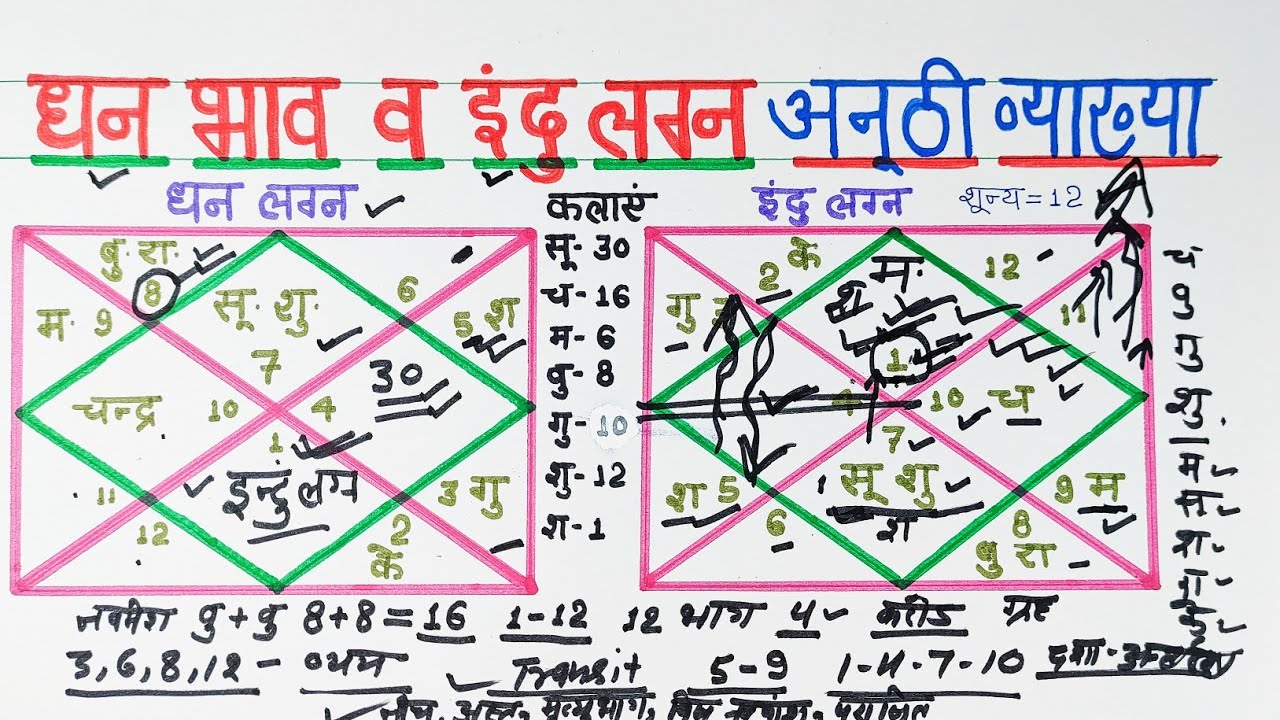 धन भाव व इंदु लग्न अनूठी व्याख्या
धन लग्न
कलाएं
इंदु लग्न
शून्य = 12
बु. रा.
8
सू. शु.
7
6
5 श
म. 9
30
चन्द्र 10
4
1
इन्दु लग्न
11
12
3 गु
2
के
सू - 30
च - 16
म - 6
बु - 8
गु - 10
शु - 12
श - 1
2 के
म.
श
12
गु
11
1
4
10 च
7
सू शु
श
श 5
6
9 म
8
बु रा
चं
बु
गु
शु
म
स
श
रा
के
नवमेश बु + बु 8+8=16 1-12 12 भाग 4 करोड ग्रह
3, 6, 8, 12 - व्यय Transit 5-9 1-4-7-10
नीच, अस्त, मृत्युभाग,